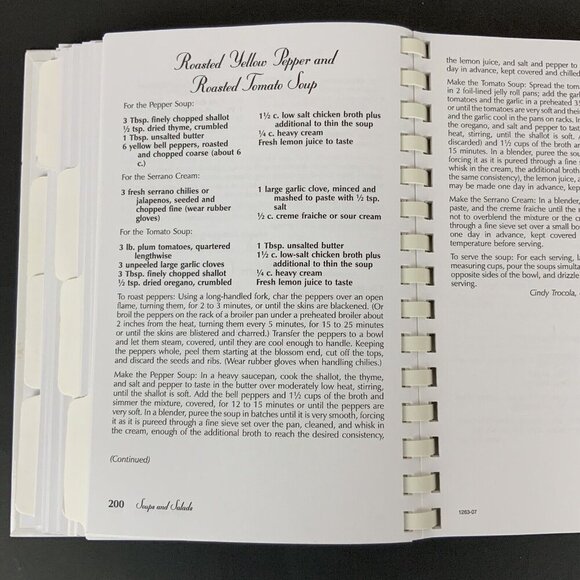 Roasted Yellow Pepper and
Roasted Tomato Soup
For the Pepper Soup:
3 Tbsp. finely chopped shallot
½ tsp. dried thyme, crumbled
1 Tbsp. unsalted butter
6 yellow bell peppers, roasted
and chopped coarse (about 6
c.)
1½ c. low salt chicken broth plus
additional to thin the soup
¼ c. heavy cream
Fresh lemon juice to taste
For the Serrano Cream:
3 fresh serrano chilies or
jalapenos, seeded and
chopped fine (wear rubber
gloves)
1 large garlic clove, minced and
mashed to paste with ½ tsp.
salt
½ c. creme fraiche or sour cream
For the Tomato Soup:
3 lb. plum tomatoes, quartered
lengthwise
3 unpeeled large garlic cloves
3 Tbsp. finely chopped shallot
½ tsp. dried oregano, crumbled
1 Tbsp. unsalted butter
1½ c. low-salt chicken broth plus
additional to thin the soup
¼ c. heavy cream
Fresh lemon juice to taste
To roast peppers: Using a long-handled fork, char the peppers over an open
flame, turning them, for 2 to 3 minutes, or until the skins are blackened. (Or
broil the peppers on the rack of a broiler pan under a preheated broiler about
2 inches from the heat, turning them every 5 minutes, for 15 to 25 minutes
or until the skins are blistered and charred.) Transfer the peppers to a bowl
and let them steam, covered, until they are cool enough to handle. Keeping
the peppers whole, peel them starting at the blossom end, cut off the tops,
and discard the seeds and ribs. (Wear rubber gloves when handling chilies.)
Make the Pepper Soup: In a heavy saucepan, cook the shallot, the thyme,
and salt and pepper to taste in the butter over moderately low heat, stirring,
until the shallot is soft. Add the bell peppers and 1½ cups of the broth and
simmer the mixture, covered, for 12 to 15 minutes or until the peppers are
very soft. In a blender, puree the soup in batches until it is very smooth, forcing
it as it is pureed through a fine sieve set over the pan, cleaned, and whisk in
the cream, enough of the additional broth to reach the desired consistency,
(Continued)
200 Soups and Salads
the lemon juice, and salt and pepper to
day in advance, kept covered and chilled
Make the Tomato Soup: Spread the toma
in 2 foil-lined jelly roll pans; add the garl
tomatoes and the garlic in a preheated 3
or until the tomatoes are very soft and their
and the garlic cool in the pans on racks. In
the oregano, and salt and pepper to taste
heat, stirring, until the shallot is soft,
discarded) and 1½ cups of the broth an
15 minutes. In a blender, puree the sou
forcing it as it is pureed through a fine si
whisk in the cream, the additional broth
the same consistency), the lemon juice, a
may be made one day in advance, kept
Make the Serrano Cream: In a blender,
paste, and the creme fraiche until the m
not to overblend the mixture or the cr
through a fine sieve set over a small bo
one day in advance, kept covered
temperature before serving.
To serve the soup: For each serving, la
measuring cups, pour the soups simultan
opposite sides of the bowl, and drizzle
serving.
Cindy Trocola,
1263-07